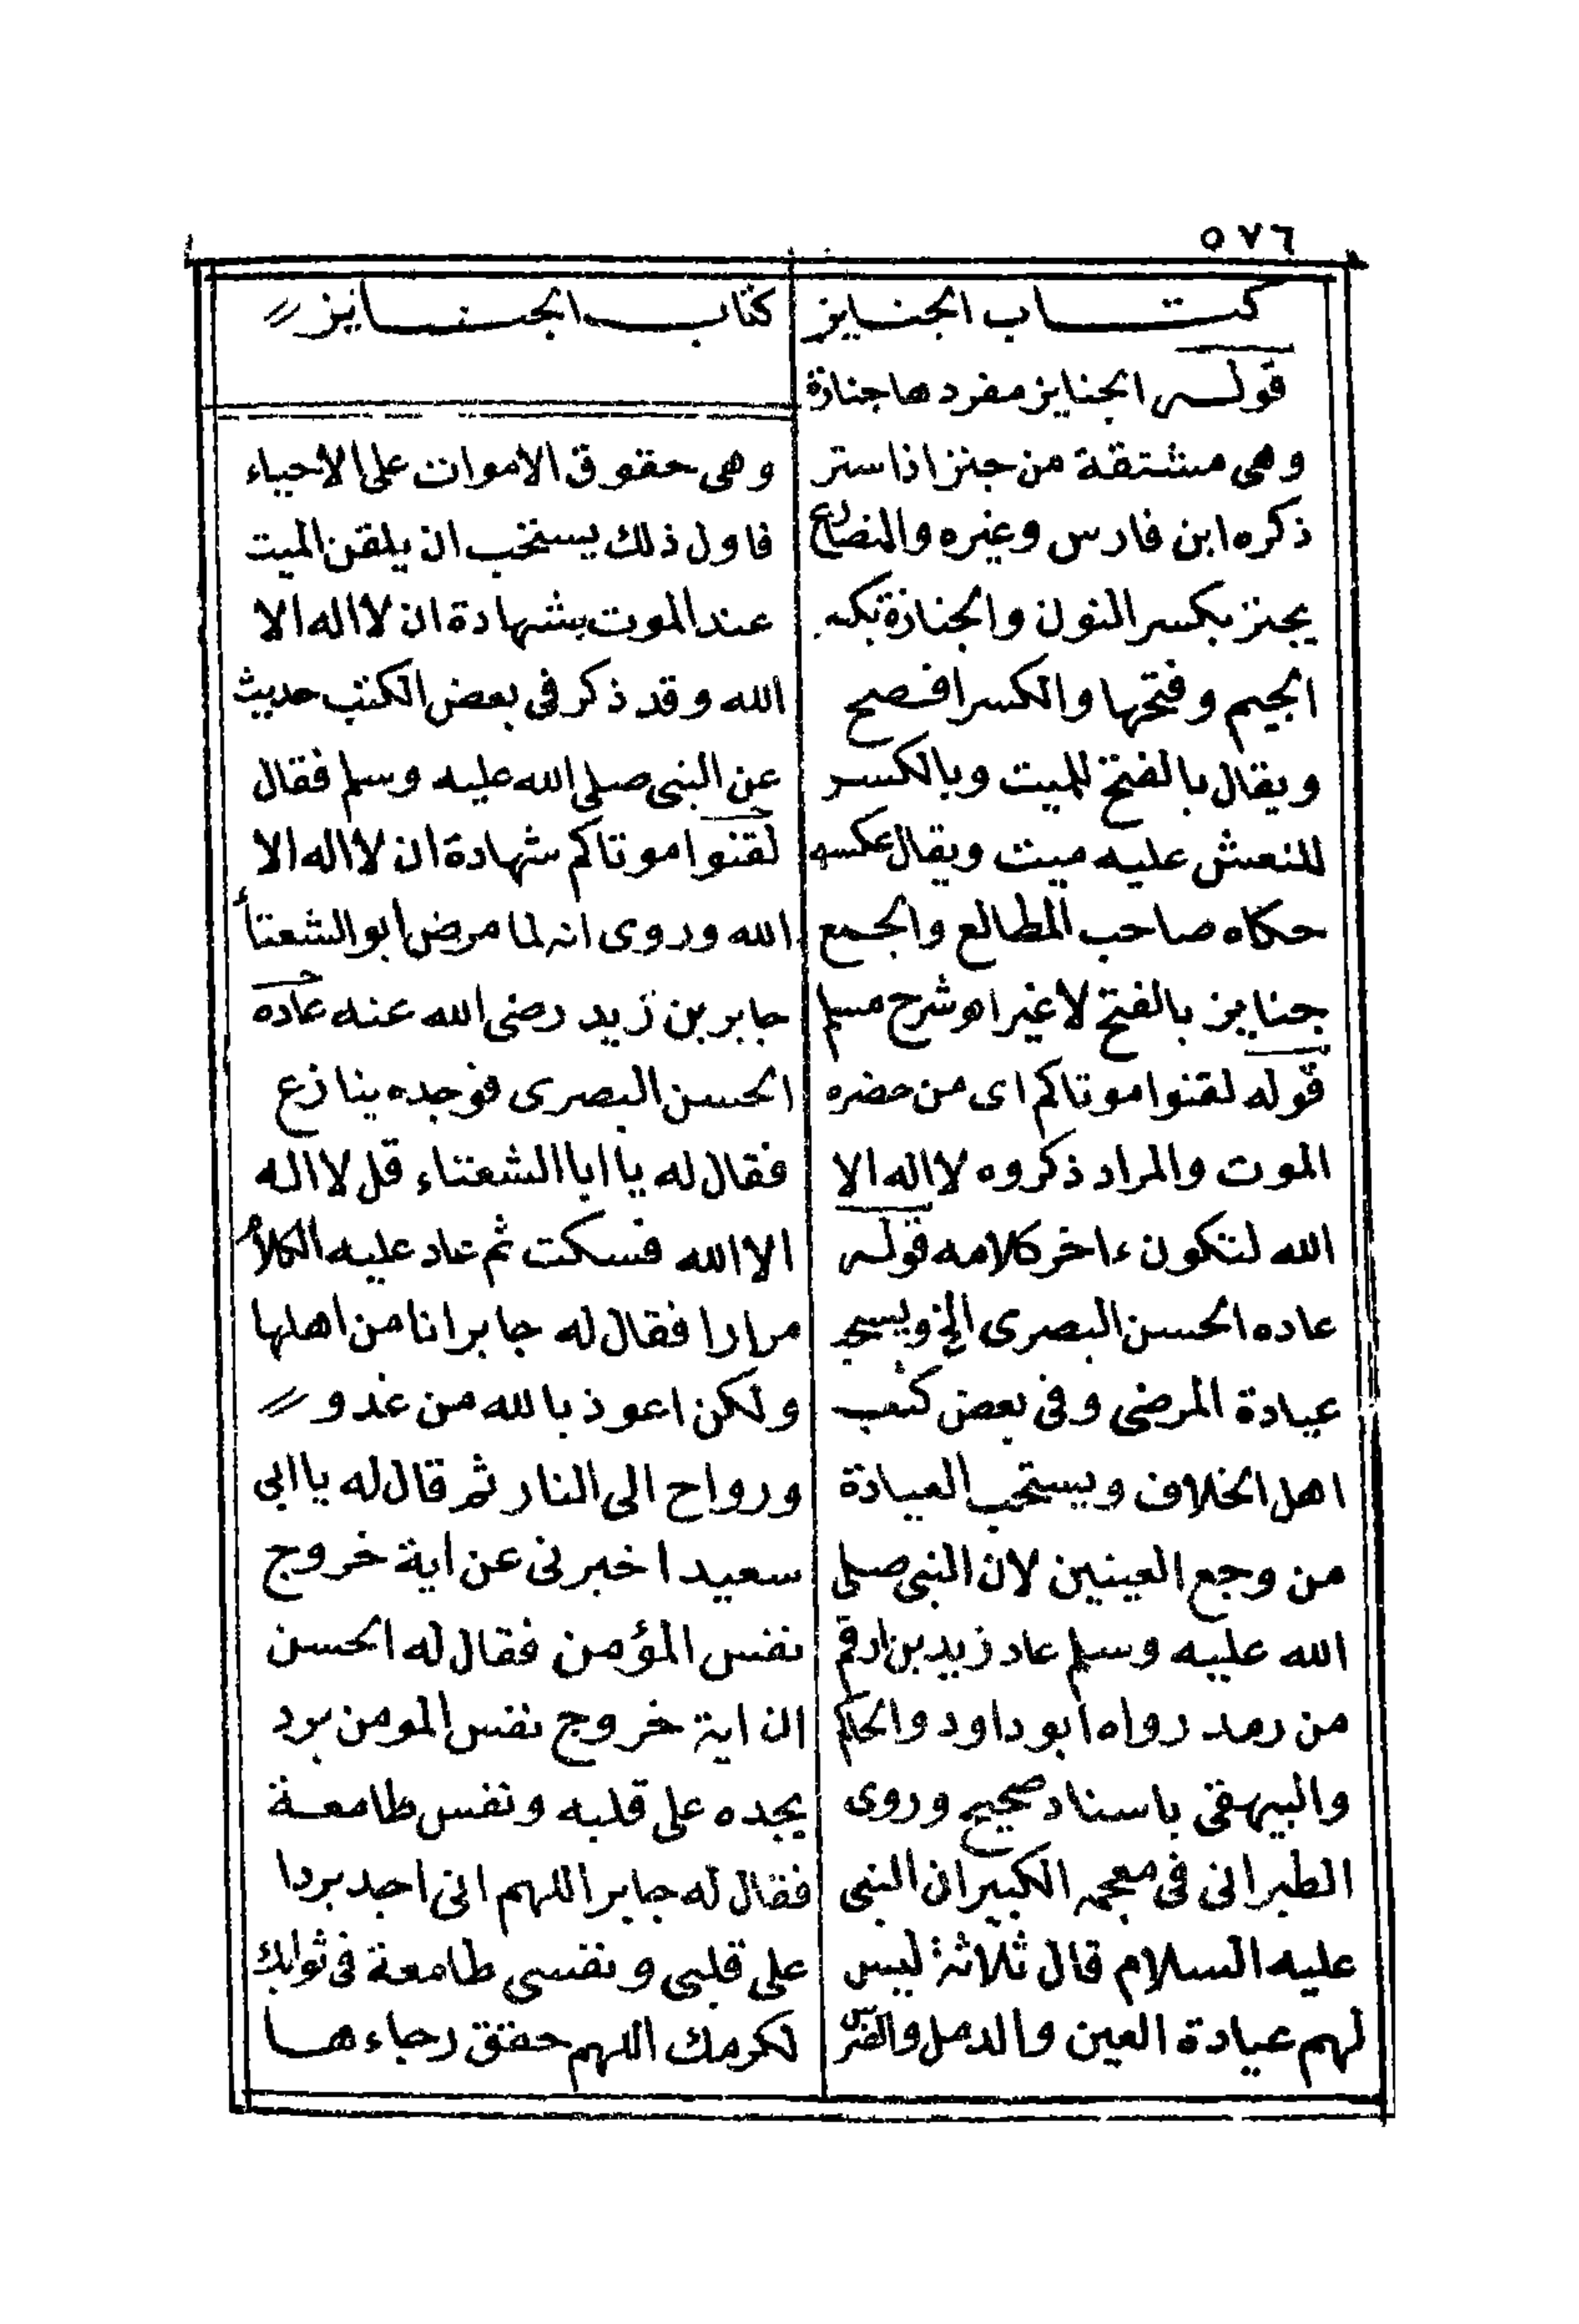 ٥٧٦
كتاب الجنايز
قوله الجنايز مفردها جنازة
وهى مشتقة من جنز اذا ستر
ذكره ابن فارس وغيره والمضارع
يجنز بكسر النون والجنازة بكسر
الجيم وفتحها والكسر افصح
ويقال بالفتح للميت وبالكسر
للنعش عليه ميت ويقال عكسه
حكاه صاحب المطالع والجمع
جنايز بالفتح لا غير اه شرح مسلم
قوله لقنوا موتاكم اى من حضره
الموت والمراد ذكروه لا اله الا
الله لتكون ءاخر كلامه قوله
عاده الحسن البصرى الخ ويستحب
عيادة المرضى وفى بعض كتب
اهل الخلاف ويستحب العيادة
من وجع العينين لان النبى صلى
الله عليه وسلم عاد زيد بن ارقم
من رمد رواه ابو داود والحاكم
والبيهقى باسناد صحيح وروى
الطبرانى فى معجمه الكبير ان النبى
عليه السلام قال ثلاثة ليس
لهم عيادة العين والدمل والضرس
كتاب الجنايز
وهى حقوق الاموات على الاحياء
فاول ذلك يستحب ان يلقن الميت
عند الموت بشهادة ان لا اله الا
الله وقد ذكر فى بعض الكتب حديث
عن النبى صلى الله عليه وسلم فقال
لقنوا موتاكم شهادة ان لا اله الا
الله وروى انه لما مرض ابو الشعثأ
جابر بن زيد رضى الله عنه عاده
الحسن البصرى فوجده ينازع
فقال له يا ابا الشعثاء قل لا اله
الا الله فسكت ثم عاد عليه الكلام
مرارا فقال له جابر انا من اهلها
ولكن اعوذ بالله من غدو
ورواح الى النار ثم قال له يا ابى
سعيد اخبرنى عن اية خروج
نفس المؤمن فقال له الحسن
ان اية خروج نفس المومن برد
يجده على قلبه ونفس طامعة
فقال له جابر اللهم انى اجد بردا
على قلبى ونفسى طامعة فى ثوابك
لكرمك اللهم حقق رجاءها